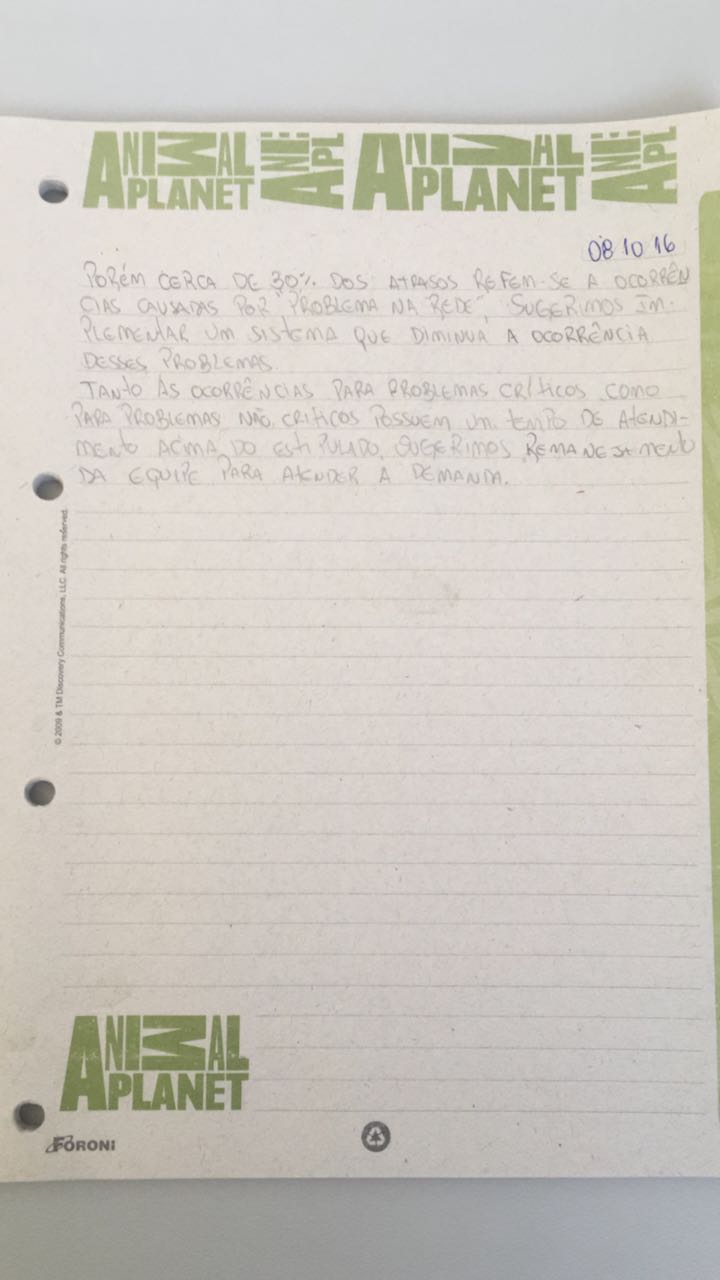 ANIMAL PLANET ANI APL ANIMAL PLANET ANI APL
08 10 16
PORÉM CERCA DE 30% DOS ATRASOS REFEM-SE A OCORRÊN
CIAS CAUSADAS POR "PROBLEMA NA REDE", SUGERIMOS IM-
PLEMENTAR UM SISTEMA QUE DIMINUA A OCORRÊNCIA
DESSES PROBLEMAS.
TANTO AS OCORRÊNCIAS PARA PROBLEMAS CRÍTICOS COMO
PARA PROBLEMAS NÃO CRITICOS POSSUEM UM TEMPO DE ATENDI-
MENTO ACIMA DO ESTIPULADO, SUGERIMOS REMANEJAMENTO
DA EQUIPE PARA ATENDER A DEMANDA.
© 2009 & TM Discovery Communications, LLC. All rights reserved.
ANIMAL PLANET
FORONI